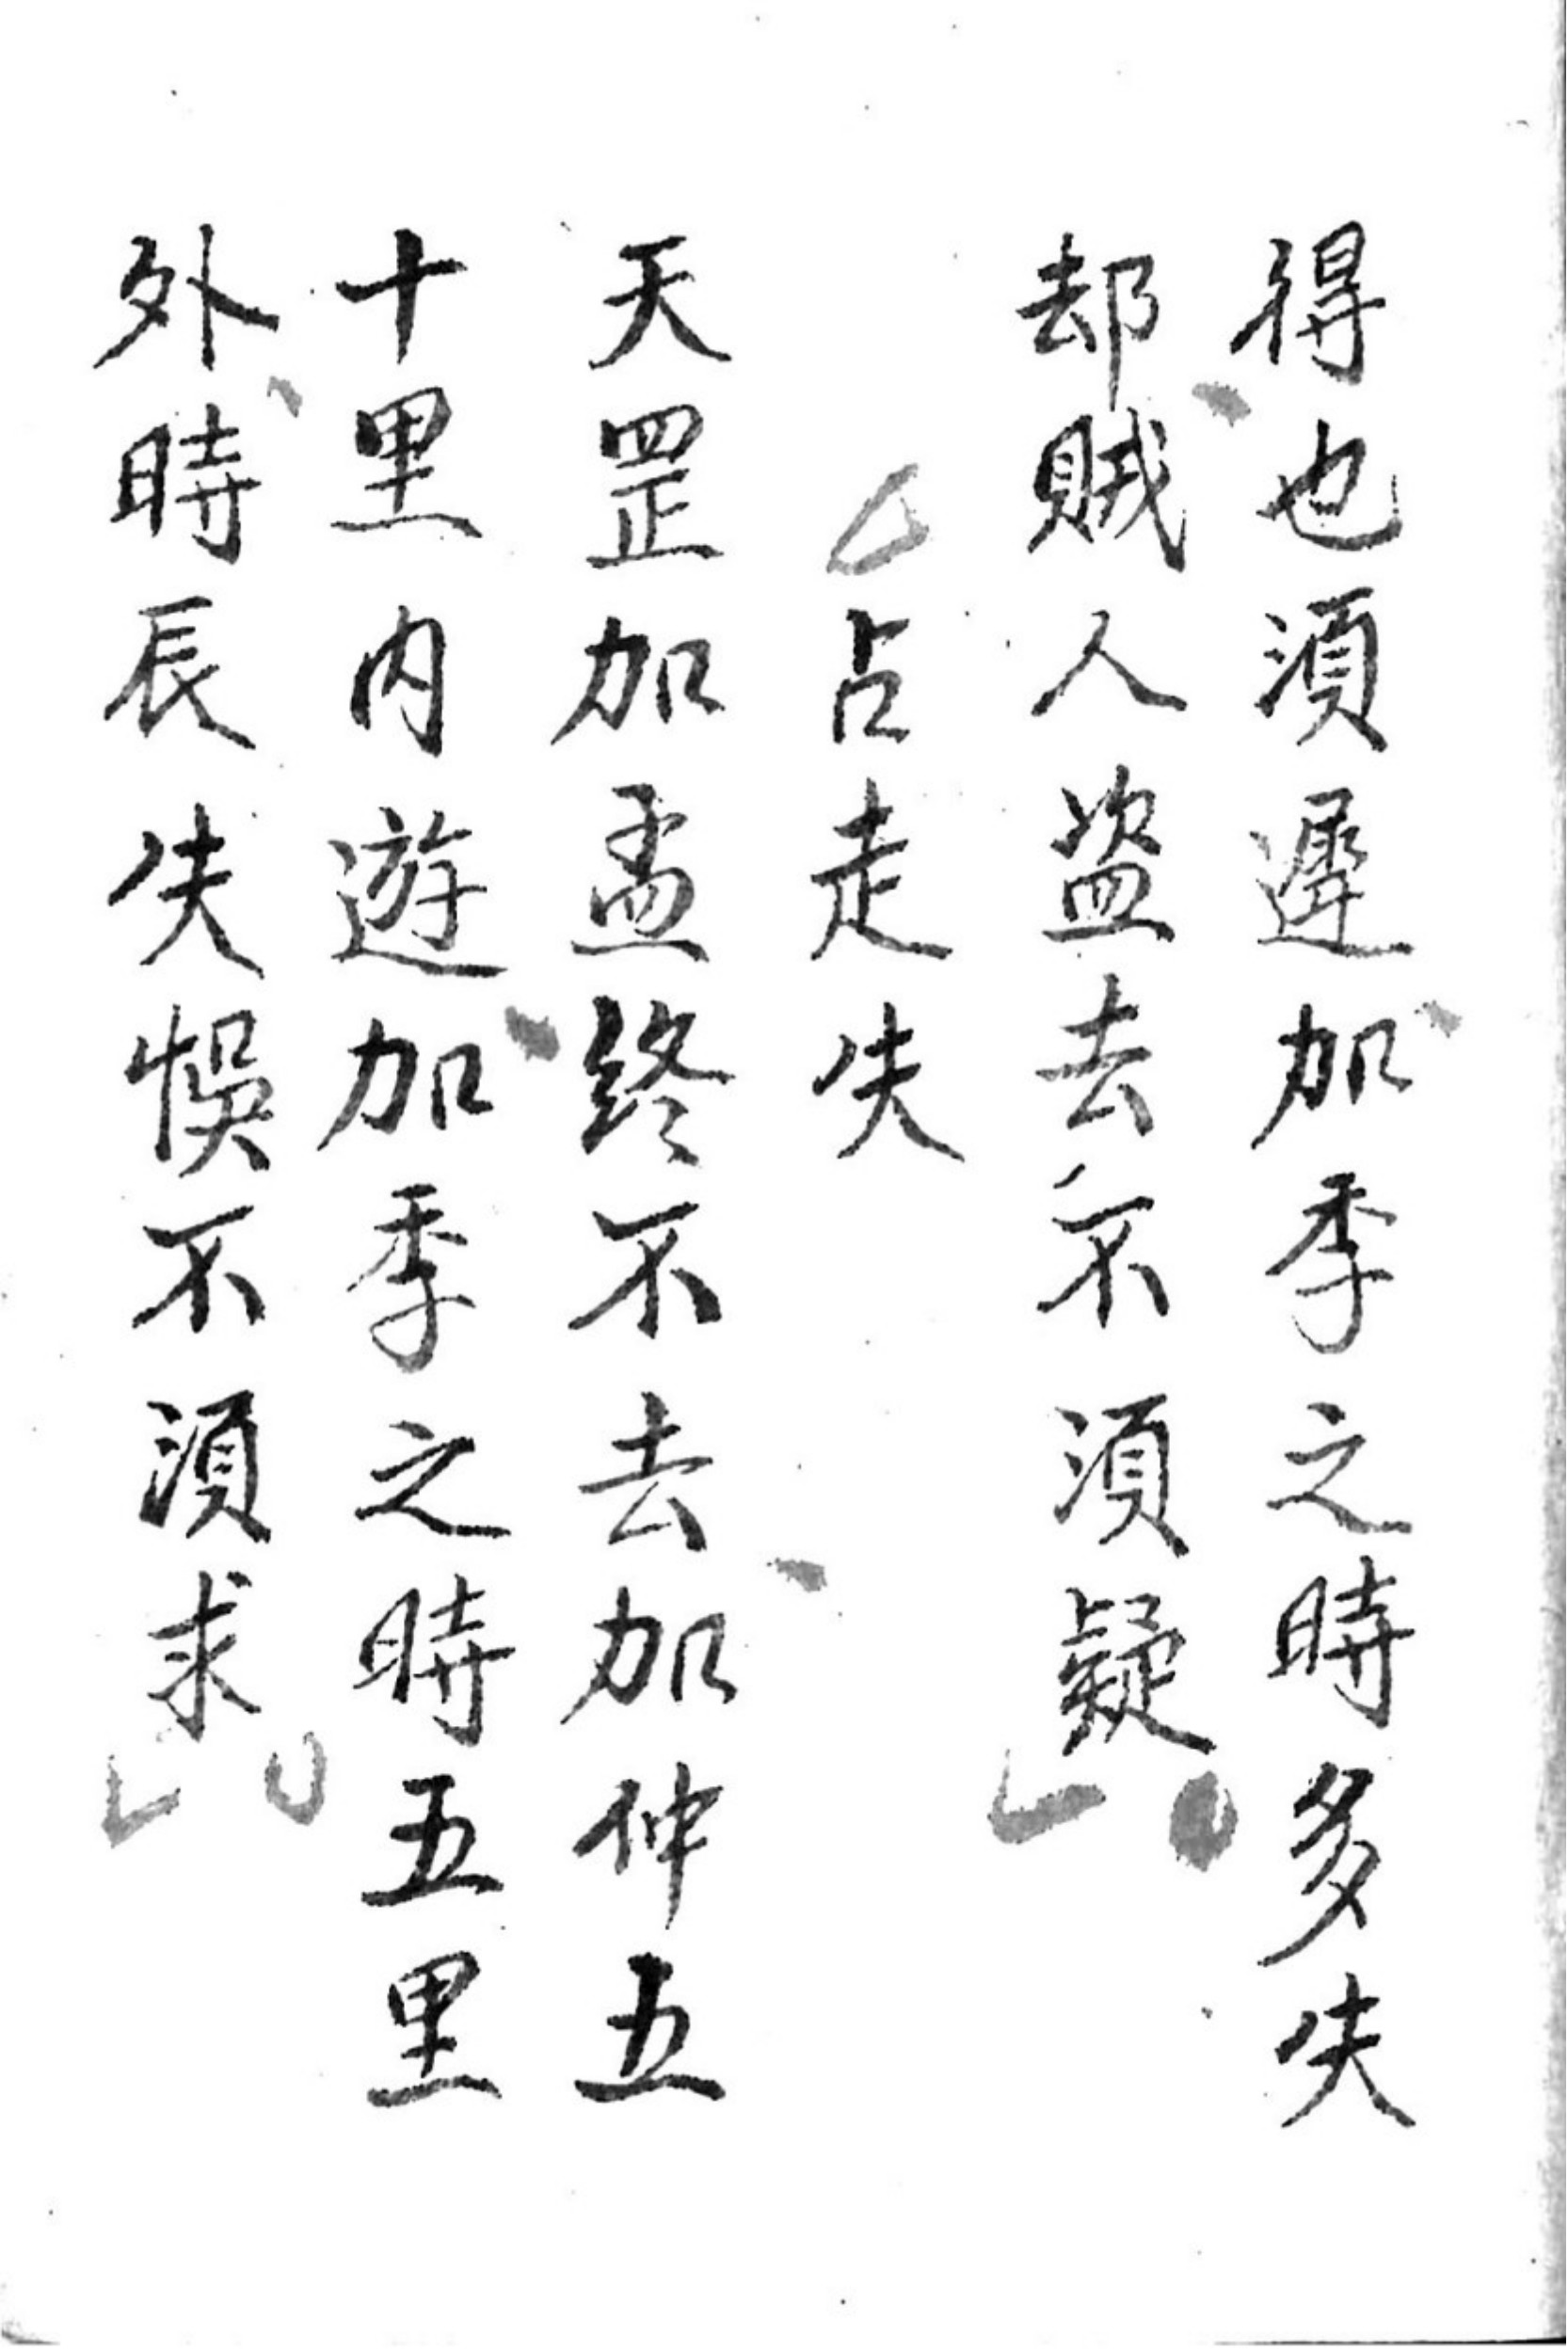 得也須遲加季之時多失
却賊人盗去不須疑
占走失
天罡加孟終不去加仲五
十里內遊加季之時五里
外時辰失悞不須求